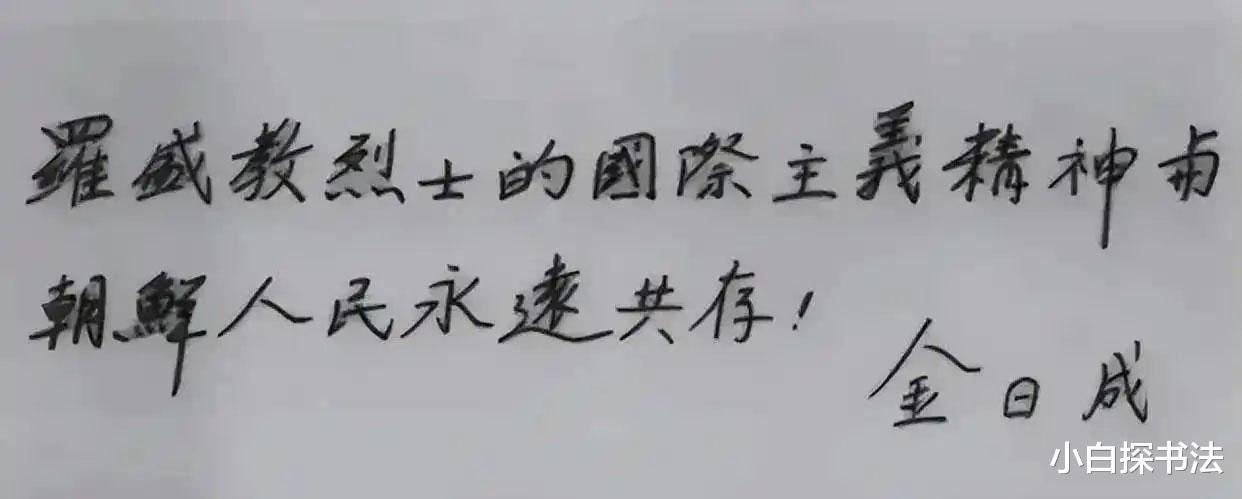 羅盛教烈士的國際主義精神与
朝鮮人民永遠共存！
金日成
小白探书法